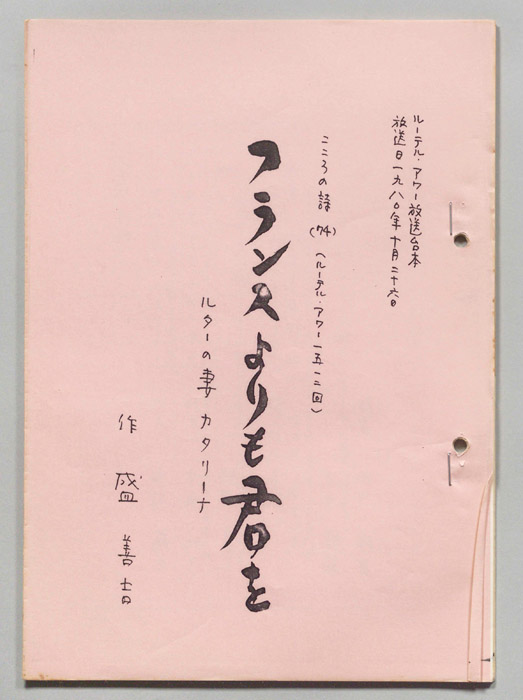 ルーテル・アワー放送台本
放送日一九八〇年十月二十六日
こころの詩 (74) (ルーテル・アワー一五一二回)
フランスよりも君を
ルターの妻 カタリーナ
作 盛 善吉